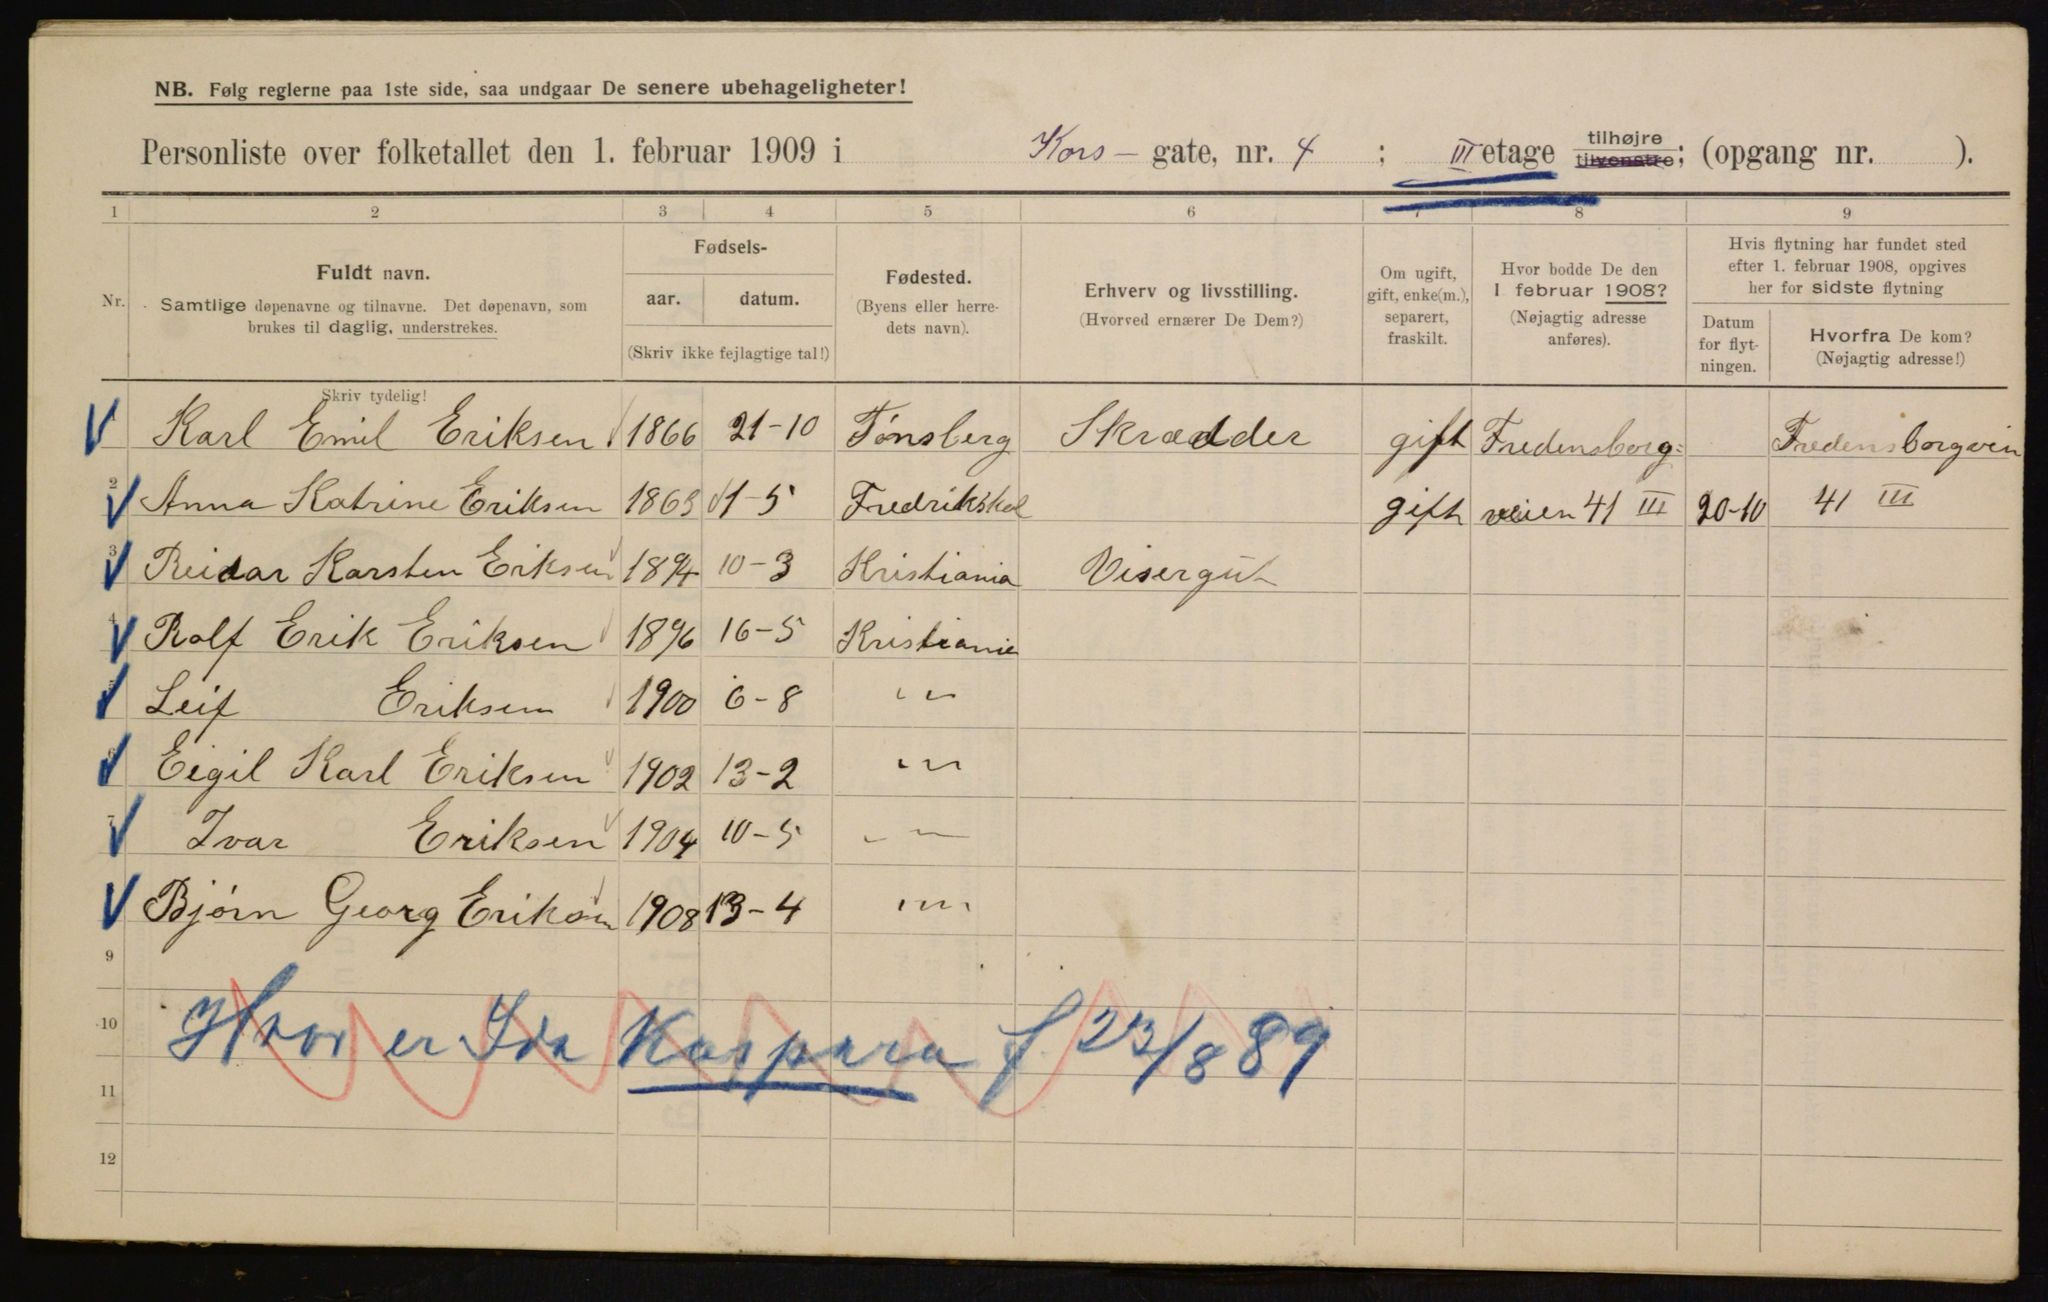 NB. Følg reglerne paa 1ste side, saa undgaar De senere ubehageligheter!
Personliste over folketallet den 1. februar 1909 i Kors- gate, nr. 4 ; III etage tilhøjre tilvenstre; (opgang nr. ).
1 2 3 4 5 6 7 8 9
Nr. Fuldt navn. Samtlige døpenavne og tilnavne. Det døpenavn, som brukes til daglig, understrekes.
Fødsels-
aar. datum.
(Skriv ikke fejlagtige tal!)
Fødested. (Byens eller herredets navn).
Erhverv og livsstilling. (Hvorved ernærer De Dem?)
Om ugift, gift, enke(m.), separert, fraskilt.
Hvor bodde De den 1 februar 1908? (Nøjagtig adresse anføres).
Hvis flytning har fundet sted efter 1. februar 1908, opgives her for sidste flytning
Datum for flytningen.
Hvorfra De kom? (Nøjagtig adresse!)
Skriv tydelig!
1 Karl Emil Eriksen 1866 21-10 Tønsberg Skrædder gift Fredensborg= Fredensborgvein
2 Anna Katrine Eriksen 1863 1-5 Fredrikshal gift veien 41 III 20-10 41 III
3 Reidar Karsten Eriksen 1894 10-3 Kristiania Visergut
4 Rolf Erik Eriksen 1896 16-5 Kristiania
5 Leif Eriksen 1900 6-8 "
6 Eigil Karl Eriksen 1902 13-2 "
7 Ivar Eriksen 1904 10-5 "
8 Bjørn Georg Eriksen 1908 13-4 "
9
10 Hvor er Ida Kaspara f 23/8 89
11
12